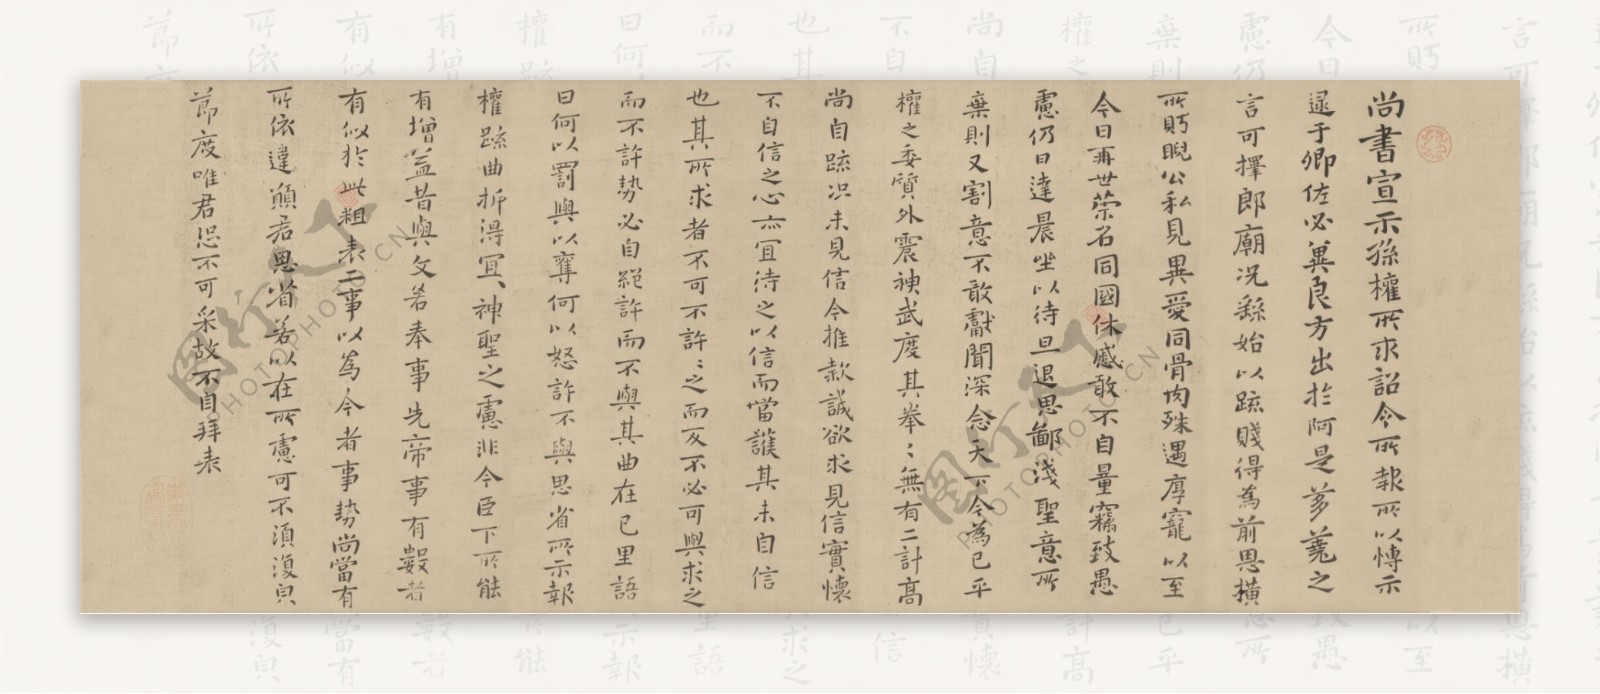 尚書宣示孫權所求詔令所報所以博示
逮于卿佐必異良方出於阿是芻蕘之
言可擇郎廟況繇始以疏賤得為前恩橫
所眄睨公私見異愛同骨肉殊遇厚寵以至
今日再世榮名同國休慼敢不自量竊致愚
慮仍日達晨坐以待旦退思鄙淺聖意所
棄則又割意不敢獻聞深念天下今為已平
權之委質外震神武度其拳拳無有二計高
尚自疏況未見信今推款誠欲求見信實懷
不自信之心亦宜待之以信而當護其未自信
也其所求者不可不許許之而反不必可與求之
而不許勢必自絕許而不與其曲在己里語
曰何以罰與以奪何以怒許不與思省所示報
權疏曲折得宜神聖之慮非今臣下所能
有增益昔與文若奉事先帝事有數者
有似於此粗表二事以為今者事勢尚當有
所依違願君思省若以在所慮可不須復貞
節度唯君恐不可采故不自拜表
图行天下
PHOTOPHOTO.CN
图行天下
PHOTOPHOTO.CN